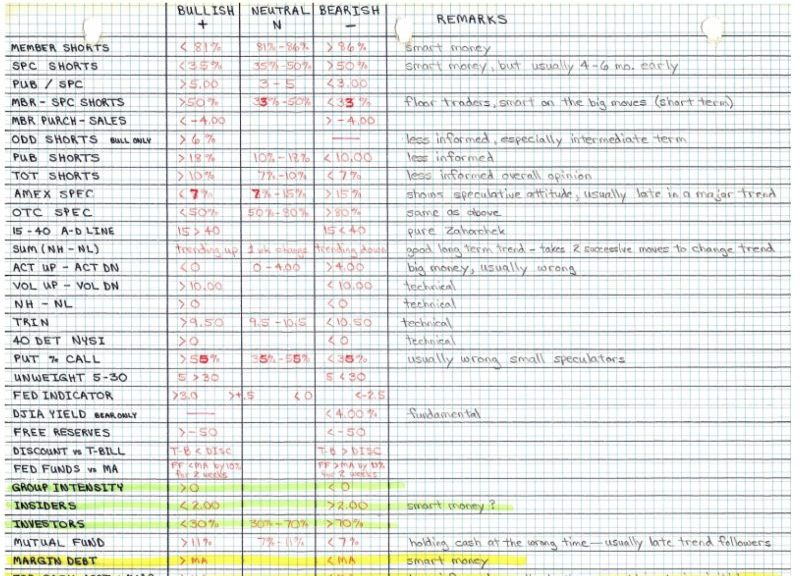 BULLISH + NEUTRAL N BEARISH − REMARKS
MEMBER SHORTS < 81% 81%-86% > 86% smart money
SPC SHORTS < 35% 35%-50% > 50% smart money, but usually 4-6 mo. early
PUB / SPC > 5.00 3 - 5 < 3.00
MBR - SPC SHORTS > 50% 33%-50% < 33% floor traders, smart on the big moves (short term)
MBR PURCH - SALES < -4.00 > -4.00
ODD SHORTS BULL ONLY > 6% — less informed, especially intermediate term
PUB SHORTS > 18% 10%-18% < 10.00 less informed
TOT SHORTS > 10% 7%-10% < 7% less informed overall opinion
AMEX SPEC < 7% 7%-15% > 15% shows speculative attitude, usually late in a major trend
OTC SPEC < 50% 50%-80% > 80% same as above
15-40 A-D LINE 15 > 40 15 < 40 pure Zahorchek
SUM (NH - NL) trending up 1 wk change trending down good long term trend - takes 2 successive moves to change trend
ACT UP - ACT DN < 0 0 - 4.00 > 4.00 big money, usually wrong
VOL UP - VOL DN > 10.00 < 10.00 technical
NH - NL > 0 < 0 technical
TRIN > 9.50 9.5 - 10.5 < 10.50 technical
40 DET NYSI > 0 < 0 technical
PUT % CALL > 55% 35%-55% < 35% usually wrong small speculators
UNWEIGHT 5-30 5 > 30 5 < 30
FED INDICATOR > 3.0 < 0 < -2.5
DJIA YIELD BEAR ONLY — < 4.00% fundamental
FREE RESERVES > -50 < -50
DISCOUNT vs T-BILL T-B < DISC T-B > DISC
FED FUNDS vs MA FF < MA by 10% for 2 weeks FF > MA by 10% for 2 weeks
GROUP INTENSITY > 0 < 0
INSIDERS < 2.00 > 2.00 smart money?
INVESTORS < 30% 30%-70% > 70%
MUTUAL FUND > 11% 7%-11% < 7% holding cash at the wrong time — usually late trend followers
MARGIN DEBT > MA < MA smart money